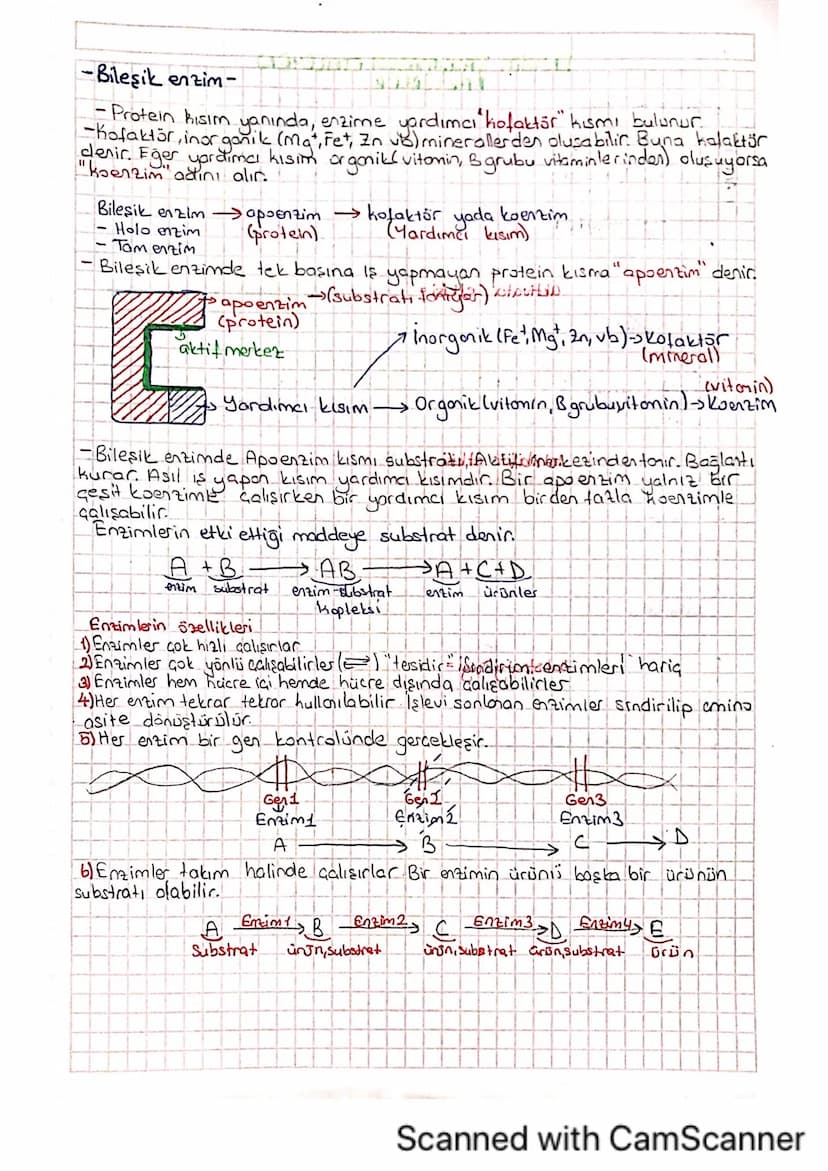 -Bileşik enzim-
- Protein kısım yanında, enzime yardımcı "kofaktör" kısmı bulunur.
-Kofaktör, inorganik (Mg⁺, Fe⁺, Zn vb) minerallerden oluşabilir. Buna kofaktör
denir. Eğer yardımcı kısım organik (vitamin, B grubu vitaminlerinden) oluşuyorsa
"koenzim" adını alır.
Bileşik enzim → apoenzim → kofaktör yada koenzim
- Holo enzim (protein) (Yardımcı kısım)
- Tam enzim
- Bileşik enzimde tek başına iş yapmayan protein kısma "apoenzim" denir.
apoenzim → (substratı
(protein)
aktif merkez
inorganik (Fe⁺, Mg⁺, Zn, vb) → Kofaktör
(mineral)
(vitamin)
Yardımcı kısım → Organik (vitamin, B grubu vitamin) → Koenzim
- Bileşik enzimde Apoenzim kısmı substratı, Aktif merkezinden tanır. Bağlantı
kurar. Asıl iş yapan kısım yardımcı kısımdır. Bir apoenzim yalnız bir
çeşit koenzimle çalışırken bir yardımcı kısım birden fazla koenzimle
çalışabilir.
Enzimlerin etki ettiği maddeye substrat denir.
A + B → AB → A + C + D
enzim substrat enzim-substrat enzim ürünler
kopleksi
Enzimlerin özellikleri
1) Enzimler çok hızlı çalışırlar
2) Enzimler çok yönlü çalışabilirler (⇌) "tesidir" sindirim enzimleri hariç
3) Enzimler hem hücre içi hemde hücre dışında çalışabilirler
4) Her enzim tekrar tekrar kullanılabilir. İşlevi sonlanan enzimler sindirilip amino
asite dönüştürülür.
5) Her enzim bir gen kontrolünde gerçekleşir.
Gen1 Gen2 Gen3
Enzim1 Enzim2 Enzim3
A → B → C → D
6) Enzimler takım halinde çalışırlar. Bir enzimin ürünü başka bir ürünün
substratı olabilir.
A Enzim1→ B Enzim2→ C Enzim3→ D Enzim4→ E
Substrat ürün,substrat ürün,substrat ürün,substrat ürün
Scanned with CamScanner